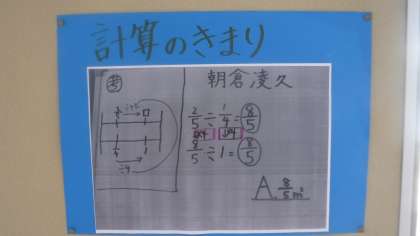 計算のきまり
考
朝倉凌久
2/5 ÷ 1/4 = 8/5
×4 ×4
8/5 ÷ 1 = 8/5
A. 8/5 m²